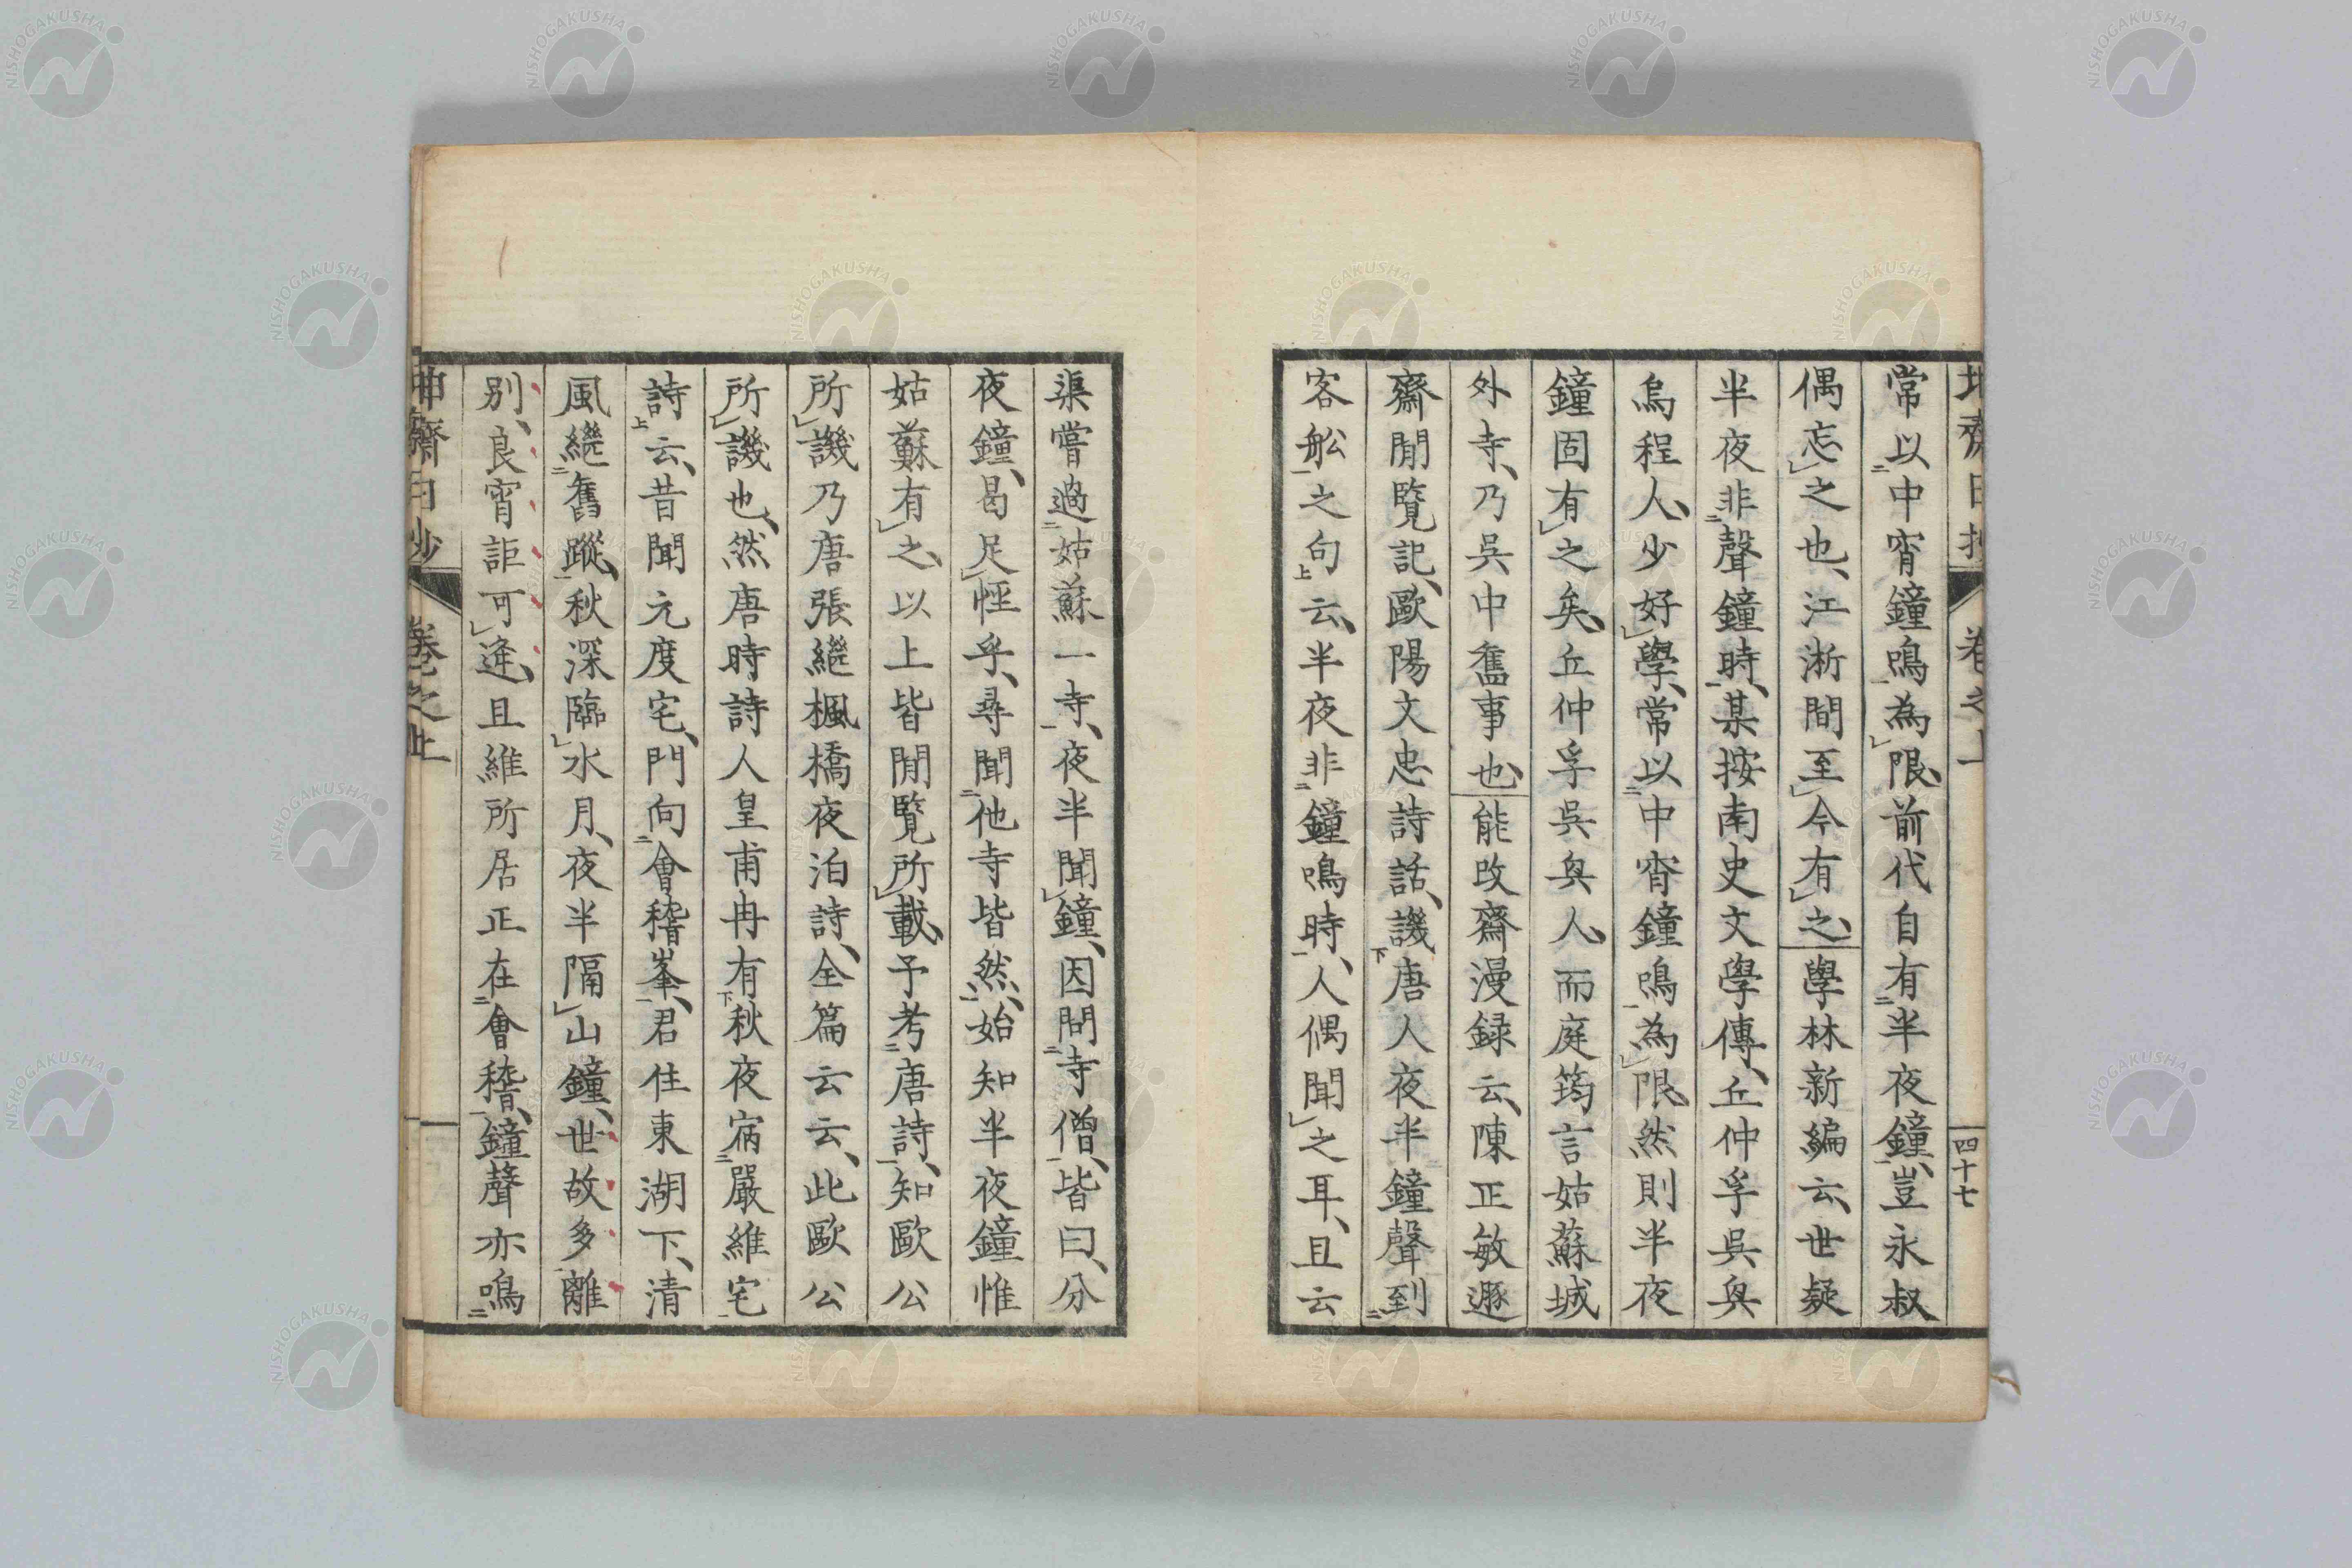 常以中宵鐘鳴為限、前代自有半夜鐘、豈永叔
偶忘之也、江淅間至今有之、學林新編云、世疑
半夜非聲鐘時、某按南史文學傳、丘仲孚吳興
烏程人、少好學、常以中宵鐘鳴為限、然則半夜
鐘固有之矣、丘仲孚吳興人、而庭筠言姑蘇城
外寺、乃吳中舊事也、能改齋漫録云、陳正敏遯
齋閒覽記、歐陽文忠詩話、譏唐人夜半鐘聲到
客舩之句云、半夜非鐘鳴時、人偶聞之耳、且云
渠嘗過姑蘇一寺、夜半聞鐘、因問寺僧、皆曰、分
夜鐘、曷足怪乎、尋聞他寺皆然、始知半夜鐘惟
姑蘇有之、以上皆閒覽所載、予考唐詩、知歐公
所譏乃唐張繼楓橋夜泊詩、全篇云云、此歐公
所譏也、然唐時詩人皇甫冉有秋夜宿嚴維宅
詩云、昔聞元度宅、門向會稽峯、君住東湖下、清
風繼舊蹤、秋深臨水月、夜半隔山鐘、世故多離
別、良宵詎可逢、且維所居正在會稽、鐘聲亦鳴
四十七
NISHOGAKUSHA